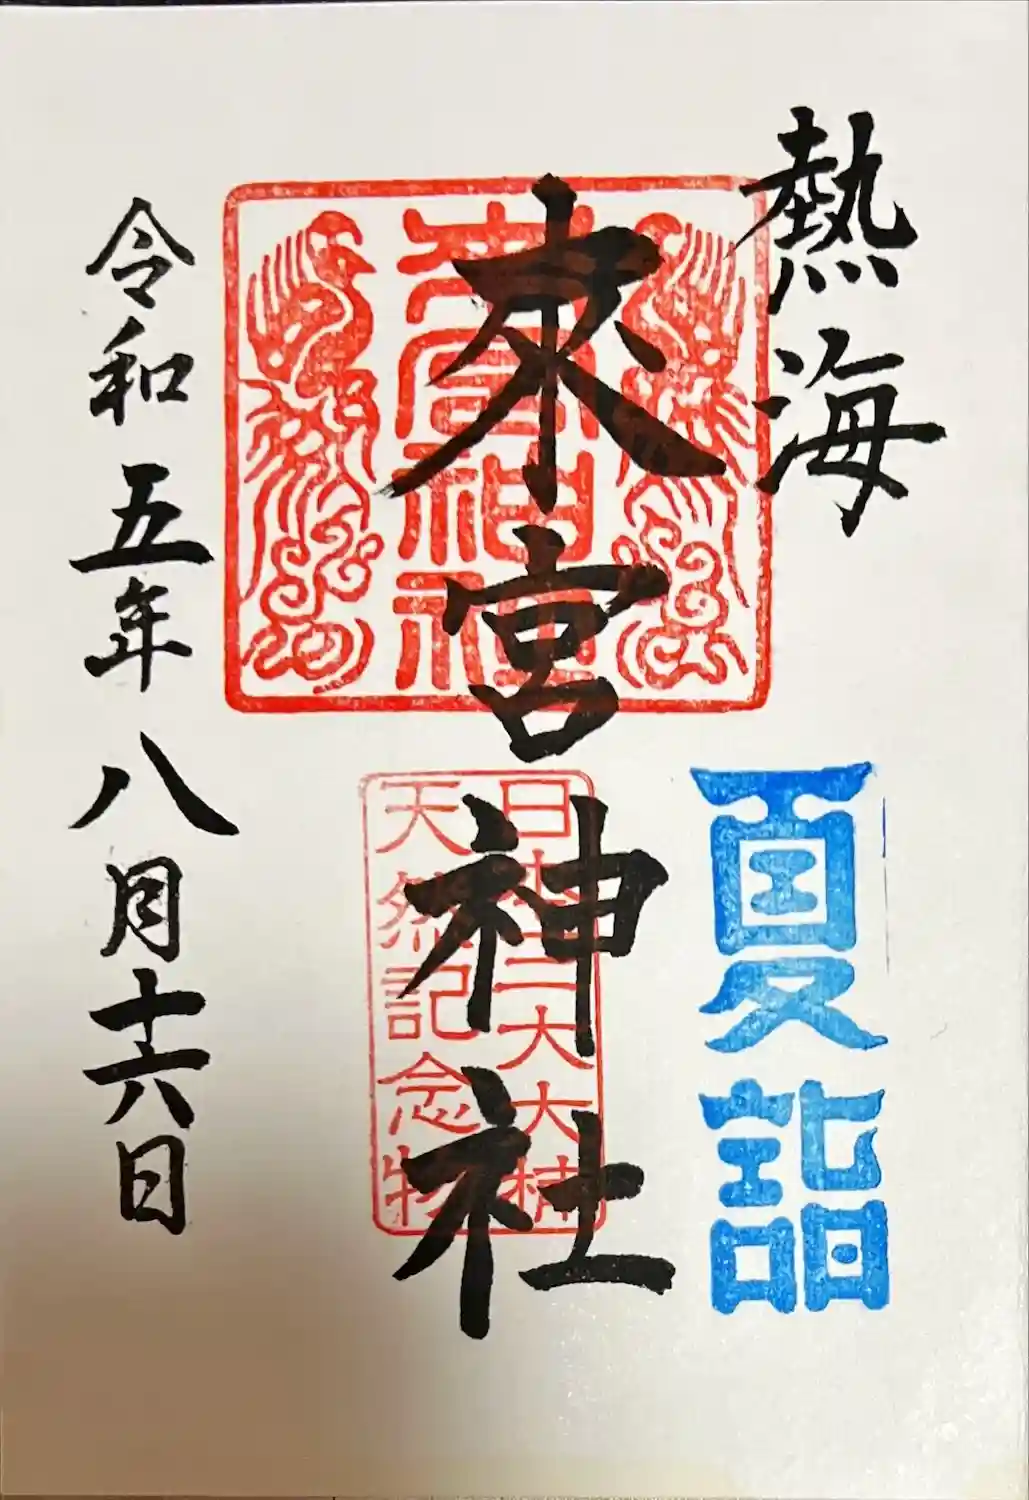 熱海
夏詣
來宮神社
來宮神社
日本三大大楠
天然記念物
令和五年八月十六日